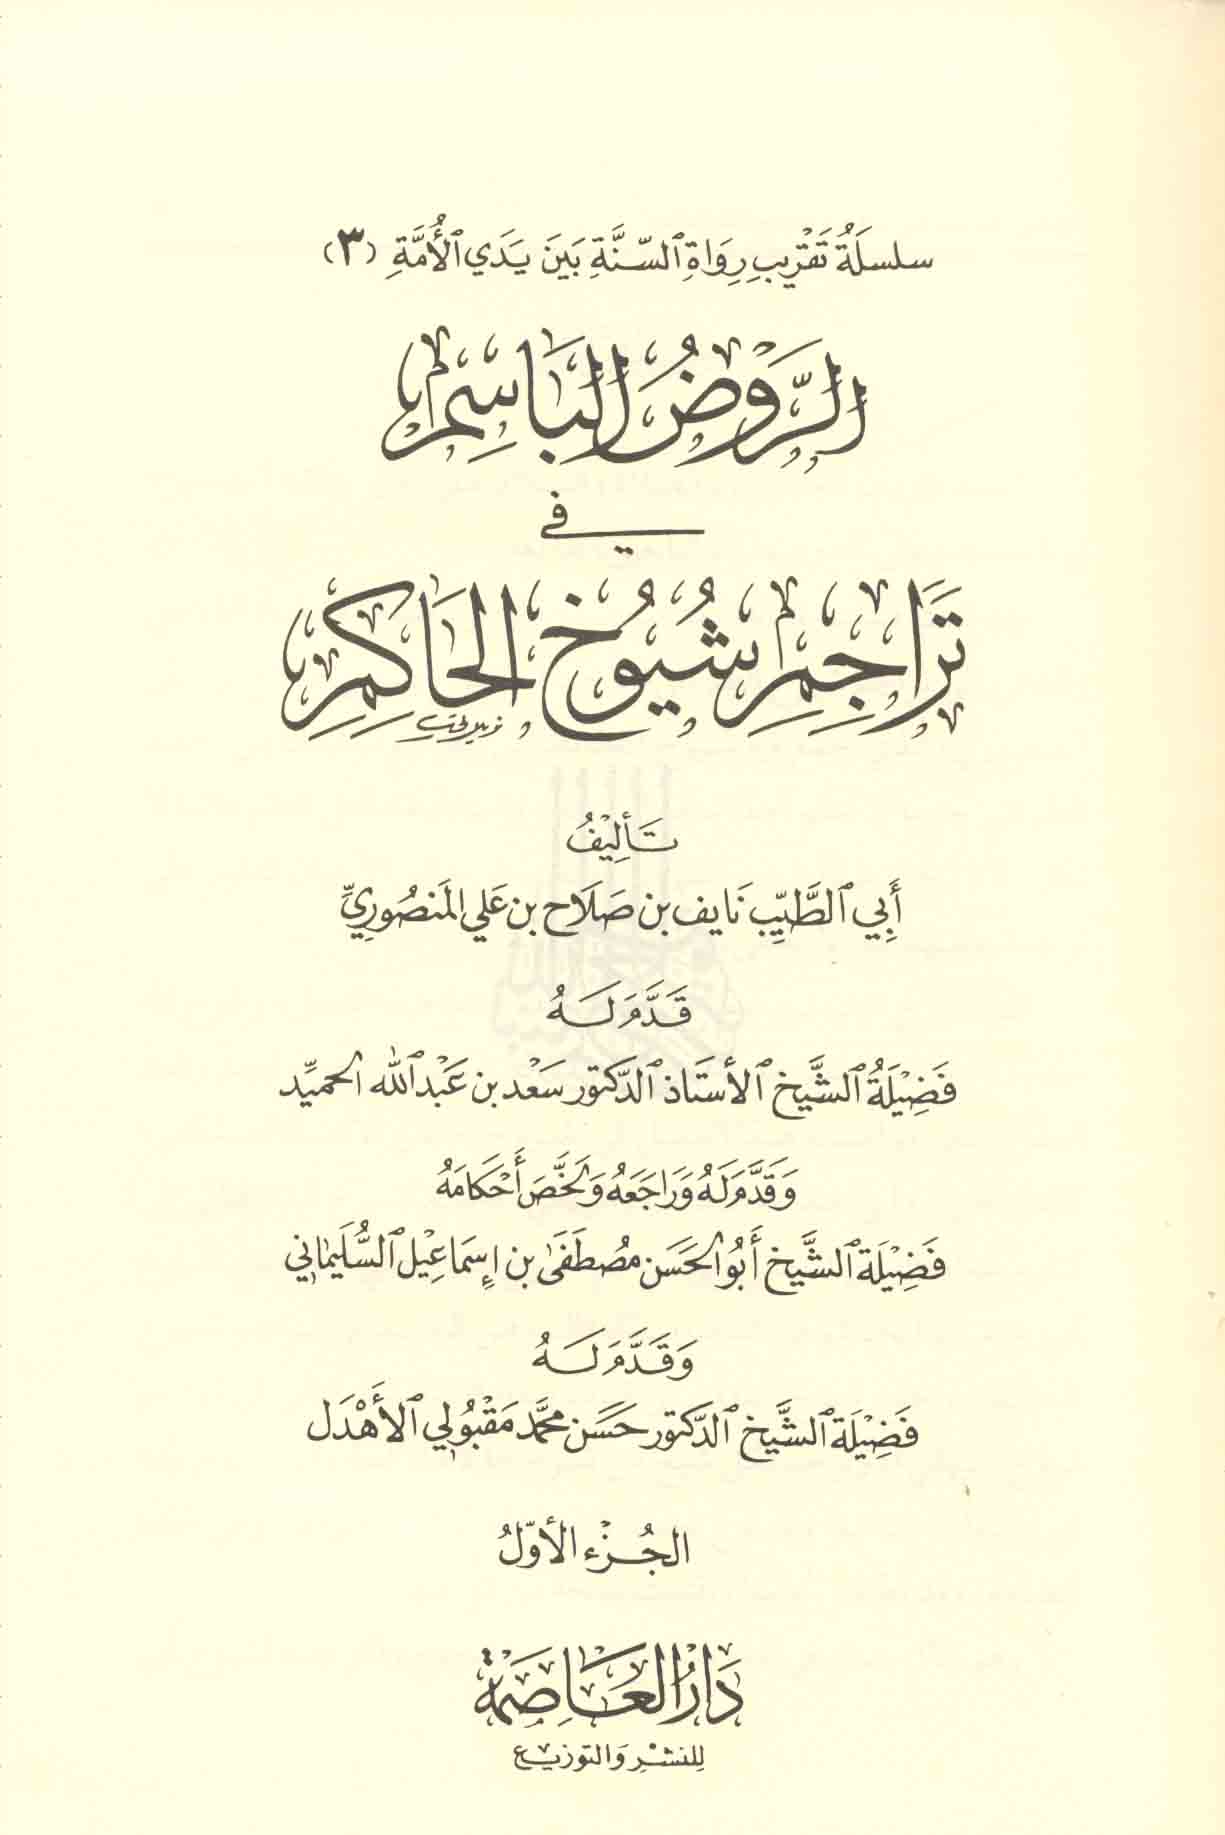 سلسلَةُ تَقْرِيبِ رِوَاةِ السُّنَّةِ بَيْنَ يَدَيِ الأُمَّةِ (٣)
الرَّوْضُ البَاسِمِ
في
تَرَاجِمِ شُيُوخِ الحَاكِمِ
تَأليْفُ
أَبِي الطَّيِّبِ نَايف بن صَلَاح بن عَلي المَنصُورِيِّ
قَدَّمَ لَهُ
فَضِيْلَةُ الشَّيخ الأستَاذ الدَّكتور سَعْد بن عَبْد الله الحميِّد
وَقَدَّمَ لَهُ وَرَاجَعَهُ وَلَخَّصَ أَحْكَامَهُ
فَضِيْلَة الشَّيخ أَبُو الحَسَن مصُطَفَى بن إِسمَاعِيْل السُّلَيماني
وَقَدَّمَ لَهُ
فَضِيْلَة الشَّيخ الدَّكتور حَسَن محمَّد مَقْبُولي الأَهْدَل
الجُزْء الأوّلُ
دَارُ العَاصِمَة
لِلنشْرِ وَالتوزيع